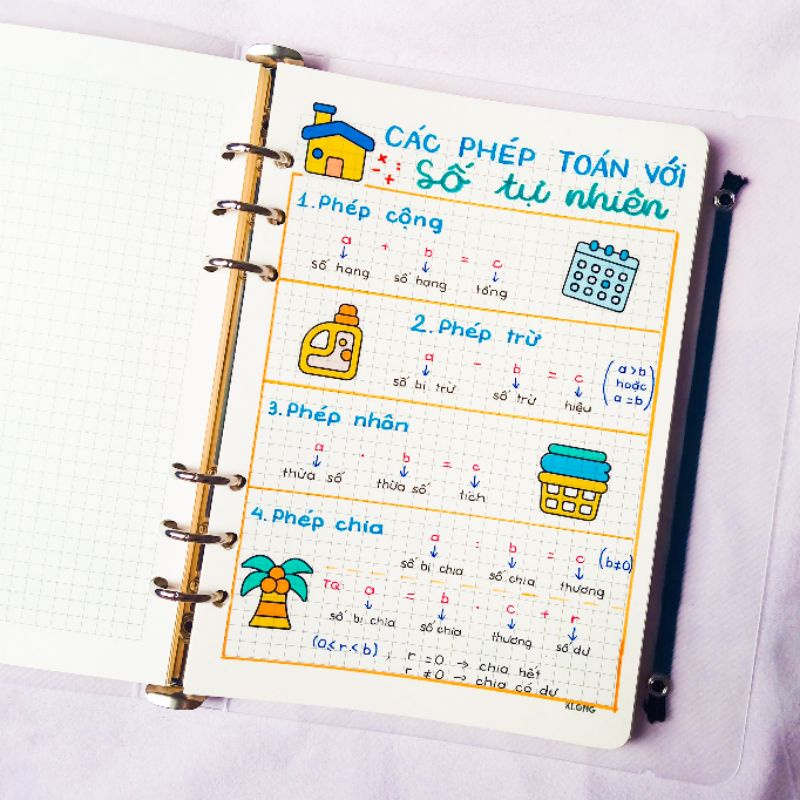 CÁC PHÉP TOÁN VỚI
x :
- +
Số tự nhiên
1. Phép cộng
a + b = c
số hạng số hạng tổng
2. Phép trừ
a - b = c
số bị trừ số trừ hiệu
(a > b
hoặc
a = b)
3. Phép nhân
a . b = c
thừa số thừa số tích
4. Phép chia
a : b = c (b ≠ 0)
số bị chia số chia thương
TQ: a = b . c + r
số bị chia số chia thương số dư
(0 ≤ r < b) ; r = 0 → chia hết
r ≠ 0 → chia có dư
XLONG